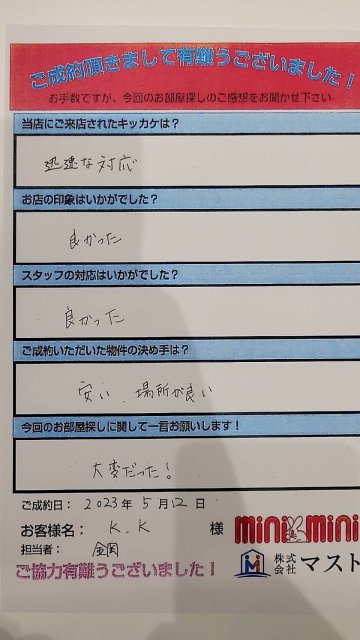 ご成約頂きまして有難うございました！
お手数ですが、今回のお部屋探しのご感想をお聞かせ下さい
当店にご来店されたキッカケは？
迅速な対応
お店の印象はいかがでした？
良かった
スタッフの対応はいかがでした？
良かった
ご成約いただいた物件の決め手は？
安い 場所が良い
今回のお部屋探しに関して一言お願いします！
大変だった！
ご成約日： 2023年 5月12日
お客様名： K.K 様
担当者：
mini mini
株式会社 マスト
ご協力有難うございました！